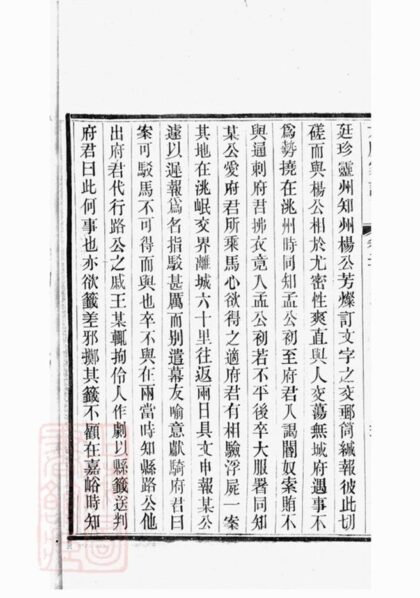 廷珍靈州知州楊公芳燦訂文字之交郵筒緘報彼此切
磋而與楊公相於尤密性爽直與人交蕩無城府遇事不
爲勢撓在洮州時同知孟公初至府君入謁閽奴索賄不
與通刺府君拂衣竟入孟公初若不平後卒大服署同知
某公愛府君所乘馬心欲得之適府君有相驗浮屍一案
其地在洮岷交界離城六十里往返兩日具文申報某公
遽以遲報爲名指駁甚厲而別遣幕友喻意獻騎府君曰
案可駁馬不可得而與也卒不與在兩當時知縣路公他
出府君代行路公之戚王某輒拘伶人作劇以縣籤送判
府君曰此何事也亦欲籤差邪擲其籤不顧在嘉峪時知